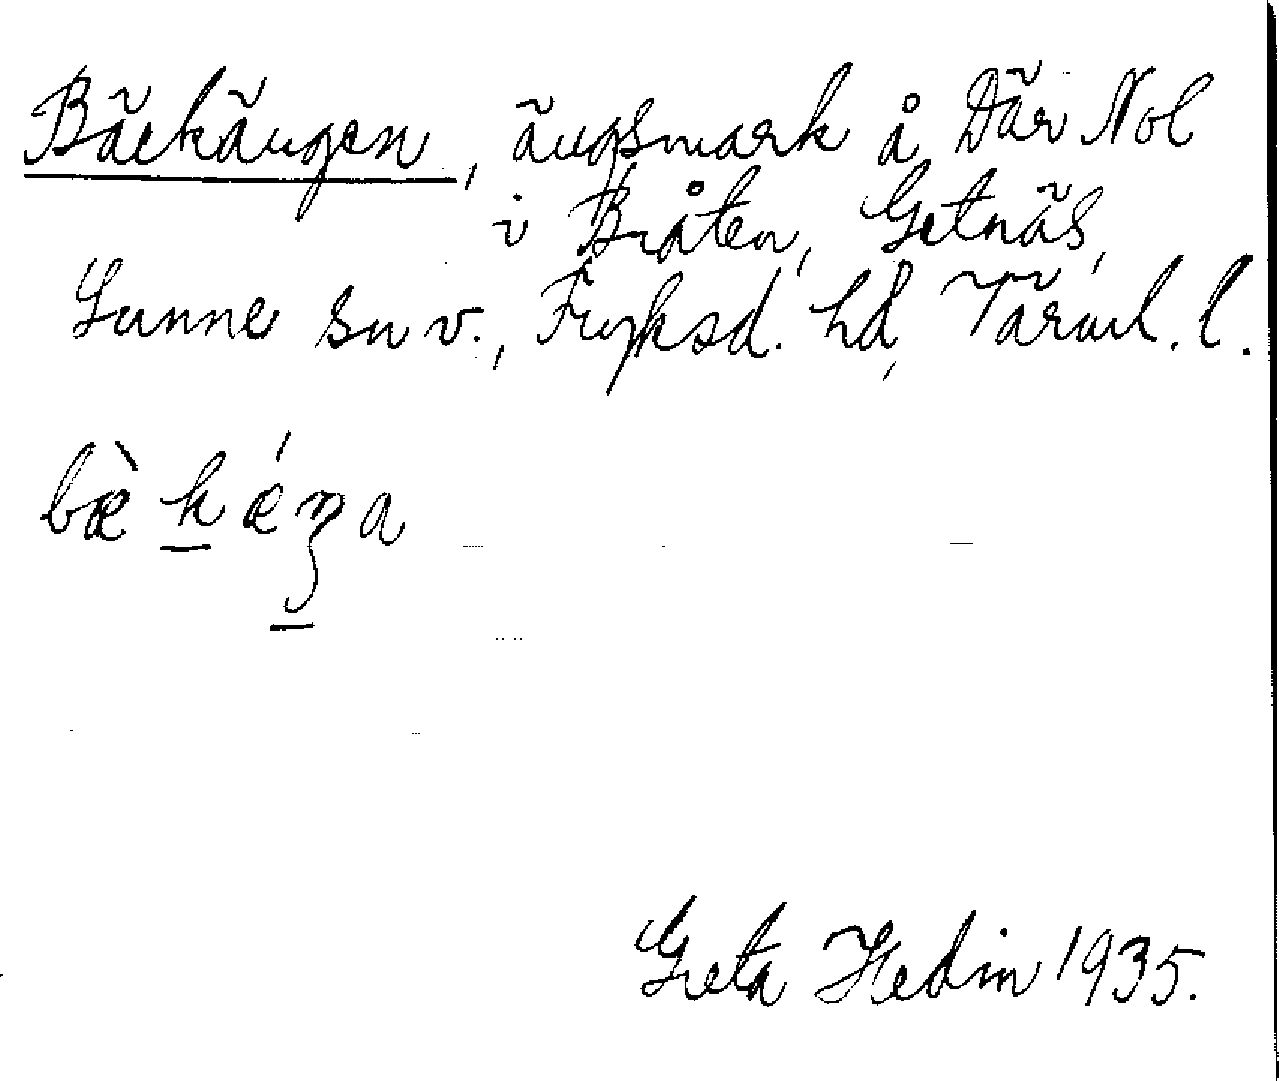 Bäckängen, ängsmark å Där Nol
i Bråten, Getnäs,
Sunne sn v., Fryksd. hd, Värml. l.
bæ̀ k ǽŋa
Greta Hedin 1935.